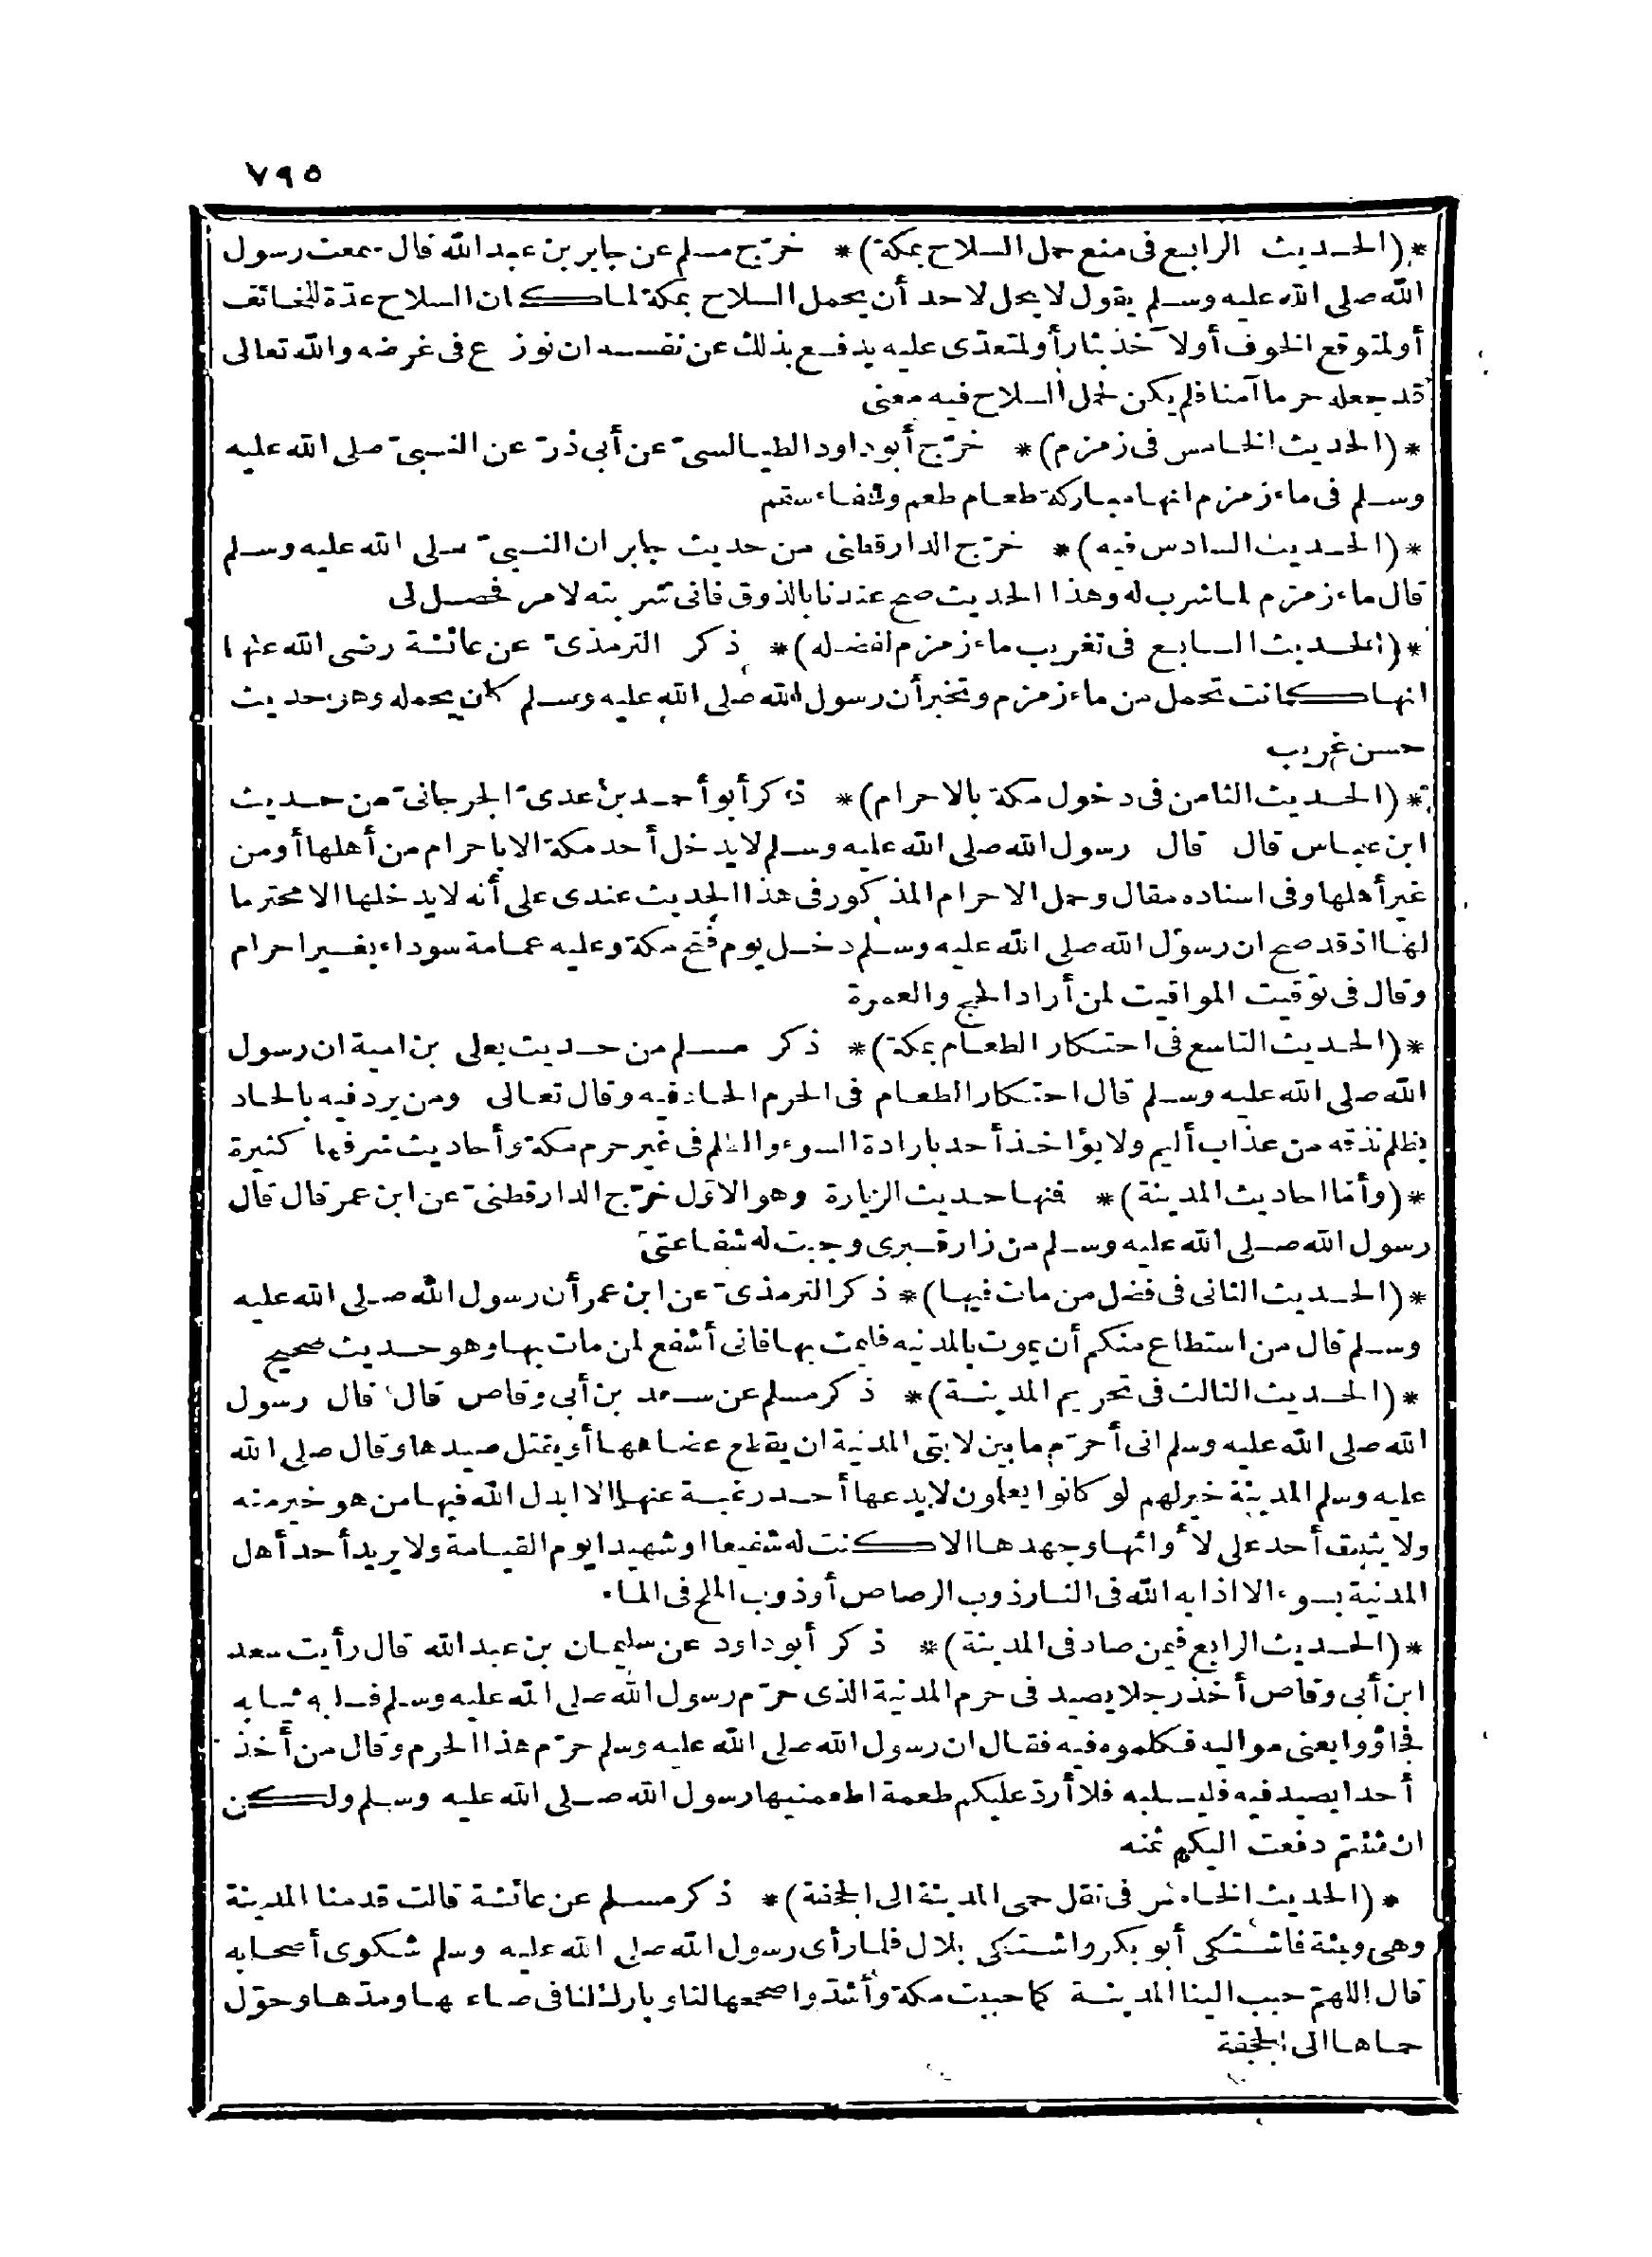 ٧٩٥
*(الحديث الرابع فى منع حمل السلاح بمكة)* خرّج مسلم عن جابر بن عبد الله قال سمعت رسول
الله صلى الله عليه وسلم يقول لا يحل لاحد أن يحمل السلاح بمكة لما كان السلاح عدّة للخائف
أو لمتوقع الخوف أو لآخذ بثار أو لمتعدّى عليه يدفع بذلك عن نفسه ان نوزع فى غرضه والله تعالى
قد جعله حرما آمنا فلم يكن لحمل السلاح فيه معنى
*(الحديث الخامس فى زمزم)* خرّج أبو داود الطيالسىّ عن أبى ذرّ عن النبىّ صلى الله عليه
وسلم فى ماء زمزم انها مباركة طعام طعم وشفاء سقم
*(الحديث السادس فيه)* خرّج الدارقطنى من حديث جابر ان النبىّ صلى الله عليه وسلم
قال ماء زمزم لما شرب له وهذا الحديث صح عندنا بالذوق فانى شربته لامر فحصل لى
*(الحديث السابع فى تغريب ماء زمزم لفضله)* ذكر الترمذىّ عن عائشة رضى الله عنها
انها كانت تحمل من ماء زمزم وتخبر أن رسول الله صلى الله عليه وسلم كان يحمله وهو حديث
حسن غريب
*(الحديث الثامن فى دخول مكة بالاحرام)* ذكر أبو أحمد بن عدىّ الجرجانىّ من حديث
ابن عباس قال قال رسول الله صلى الله عليه وسلم لا يدخل أحد مكة الا باحرام من أهلها أو من
غير أهلها وفى اسناده مقال وحمل الاحرام المذكور فى هذا الحديث عندى على أنه لا يدخلها الا محترما
لها اذ قد صح ان رسول الله صلى الله عليه وسلم دخل يوم فتح مكة وعليه عمامة سوداء بغير احرام
وقال فى توقيت المواقيت لمن أراد الحج والعمرة
*(الحديث التاسع فى احتكار الطعام بمكة)* ذكر مسلم من حديث يعلى بن امية ان رسول
الله صلى الله عليه وسلم قال احتكار الطعام فى الحرم الحاد فيه وقال تعالى ومن يرد فيه بالحاد
بظلم نذقه من عذاب أليم ولا يؤاخذ أحد بارادة السوء والظلم فى غير حرم مكة وأحاديث شرفها كثيرة
*(وأما احاديث المدينة)* فنها حديث الزيارة وهو الاوّل خرّج الدارقطنىّ عن ابن عمر قال قال
رسول الله صلى الله عليه وسلم من زار قبرى وجبت له شفاعتى
*(الحديث الثانى فى فضل من مات فيها)* ذكر الترمذىّ عن ابن عمر أن رسول الله صلى الله عليه
وسلم قال من استطاع منكم أن يموت بالمدينه فليمت بها فانى أشفع لمن مات بها وهو حديث صحيح
*(الحديث الثالث فى تحريم المدينة)* ذكر مسلم عن سعد بن أبى وقاص قال قال رسول
الله صلى الله عليه وسلم انى أحرّم ما بين لابتى المدينة ان يقطع عضاهها أو يقتل صيدها وقال صلى الله
عليه وسلم المدينة خير لهم لو كانوا يعلمون لا يدعها أحد رغبة عنها الا ابدل الله فيها من هو خير منه
ولا يثبت أحد على لأوائها وجهدها الا كنت له شفيعا او شهيدا يوم القيامة ولا يريد أحد أهل
المدينة بسوء الا اذابه الله فى النار ذوب الرصاص أو ذوب الملح فى الماء
*(الحديث الرابع فيمن صاد فى المدينة)* ذكر أبو داود عن سليمان بن عبد الله قال رأيت سعد
ابن أبى وقاص أخذ رجلا يصيد فى حرم المدينة الذى حرّم رسول الله صلى الله عليه وسلم فسلبه ثيابه
فجاؤوا يعنى مواليه فكلموه فيه فقال ان رسول الله صلى الله عليه وسلم حرّم هذا الحرم وقال من أخذ
أحدا يصيد فيه فليسلبه فلا أردّ عليكم طعمة اطعمنيها رسول الله صلى الله عليه وسلم ولكن
ان شئتم دفعت اليكم ثمنه
*(الحديث الخامس فى نقل حمى المدينة الى الجحفة)* ذكر مسلم عن عائشة قالت قدمنا المدينة
وهى وبئة فاشتكى أبو بكر واشتكى بلال فلما رأى رسول الله صلى الله عليه وسلم شكوى أصحابه
قال اللهمّ حبب الينا المدينة كما حببت مكة وأشدّ وصححها لنا وبارك لنا فى صاعها ومدّها وحوّل
حماها الى الجحفة